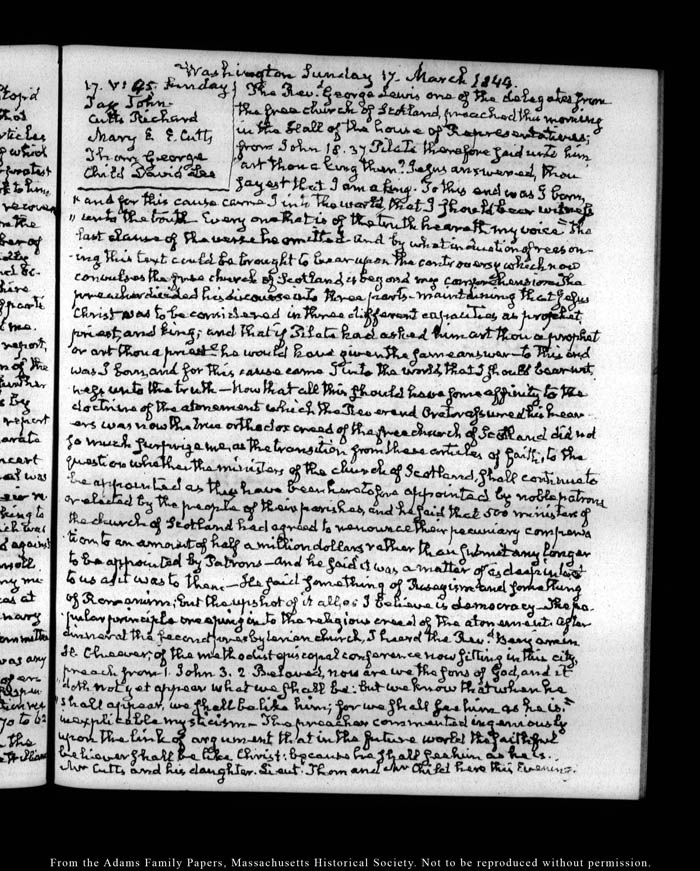 Washington Sunday 17. March 1844.
17. V: 45. Sunday
Tay John
Cutts Richard
Mary E. E. Cutts
Thom George
Child David Lee
The Revd. George Lewis one of the delegates from
the free church of Scotland, preached this morning
in the Hall of the house of Representatives;
from John 18. 37 Pilate therefore said unto him
art thou a king then? Jesus answered, thou
sayest that I am a king. To this end was I born,
" and for this cause came I into the world, that I should bear witness
" unto the truth. Every one that is of the truth heareth my voice" The
last clause of the verse he omitted. and by what induction of reason-
-ing this text could be brought to bear upon the controversy which now
convulses the free church of Scotland is beyond my comprehension. The
preacher divided his discourse into three parts. maintaining that Jesus
Christ was to be considered in three different capacities as prophet,
priest, and king; and that if Pilate had asked him art thou a prophet
or art thou a priest? he would have given the same answer— to this end
was I born, and for this cause came I into the world that I should bear wit-
ness unto the truth— Now that all this should have some affinity to the
doctrine of the atonement which the Reverend Orator assured his hear-
ers was now the true orthodox creed of the free church of Scotland did not
so much surprize me, as the transition from these articles of faith, to the
question whether the ministers of the church of Scotland, shall continue to
be appointed as they have been heretofore appointed by noble patrons
or elected by the people of their parishes, and he said that 500 ministers of
the church of Scotland had agreed to renounce their pecuniary compensa
tion to an amount of half a million dollars rather than submit any longer
to be appointed by Patrons— and he said it was a matter of as deep interest
to us as it was to them.— He said something of Puseyism and something
of Romanism; but the upshot of it all, as I believe is democracy— The po-
pular principle creeping into the religious creed of the atonement. After
dinner at the second presbyterian church, I heard the Revd. Benjamin
H. Cheever, of the methodist episcopal conference now sitting in this city,
preach from 1. John 3. 2 Beloved, now are we the sons of God, and it
doth not yet appear what we shall be: but we know that when he
shall appear, we shall be like him; for we shall see him as he is."
inexplicable mysticism— The preacher commented ingeniously
upon the link of argument that in the future world the faithful
believer shall be like Christ: because he shall see him as he is.
Mr Cutts and his daughter. Lieut. Thom and Mr Child here this Evening.
From the Adams Family Papers, Massachusetts Historical Society. Not to be reproduced without permission.